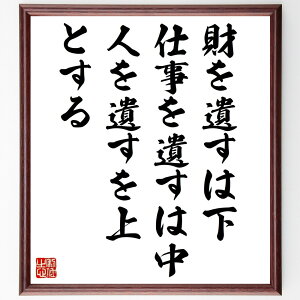 財を遺すは下
仕事を遺すは中
人を遺すを上
とする